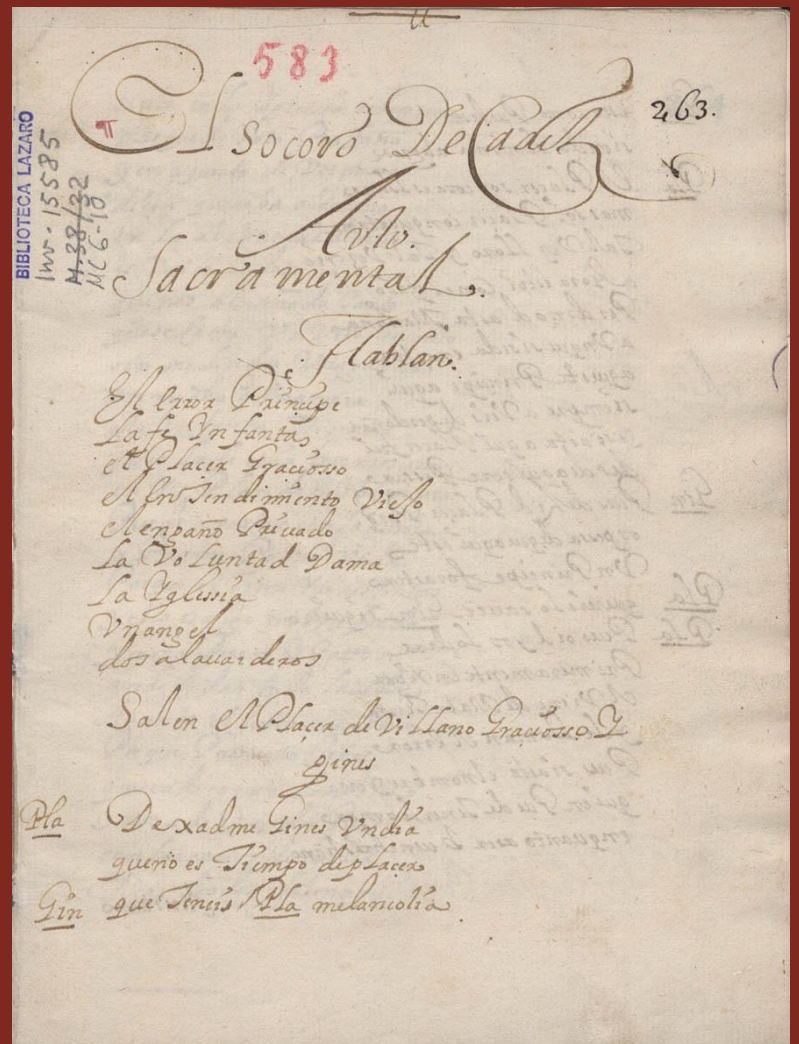 583
263.
BIBLIOTECA LAZARO
Inv. 15585
M.38/32
MC6-10
El socoro De Cadiz
Auto.
Sacramental.
Hablan.
El error Principe
La fe Ynfanta
el Placer Graciosso
el EnTendimiento Viejo
el engaño Priuado
La VoLuntad Dama
La Yglessia
Vn angel
dos alauarderos
Salen el PLacer de ViLLano Graciosso Y
gines
Pla Dexadme Gines Vn dia
que no es Tiempo de pLacer
Gin que Teneis / Pla melancolia